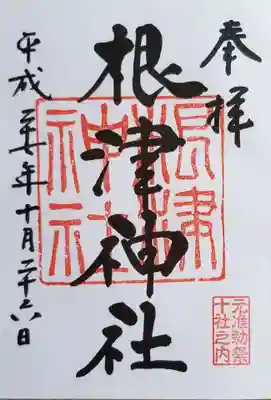 奉拝
根津神社
根津神社
元准勅祭
十社之内
平成二十七年十月二十六日